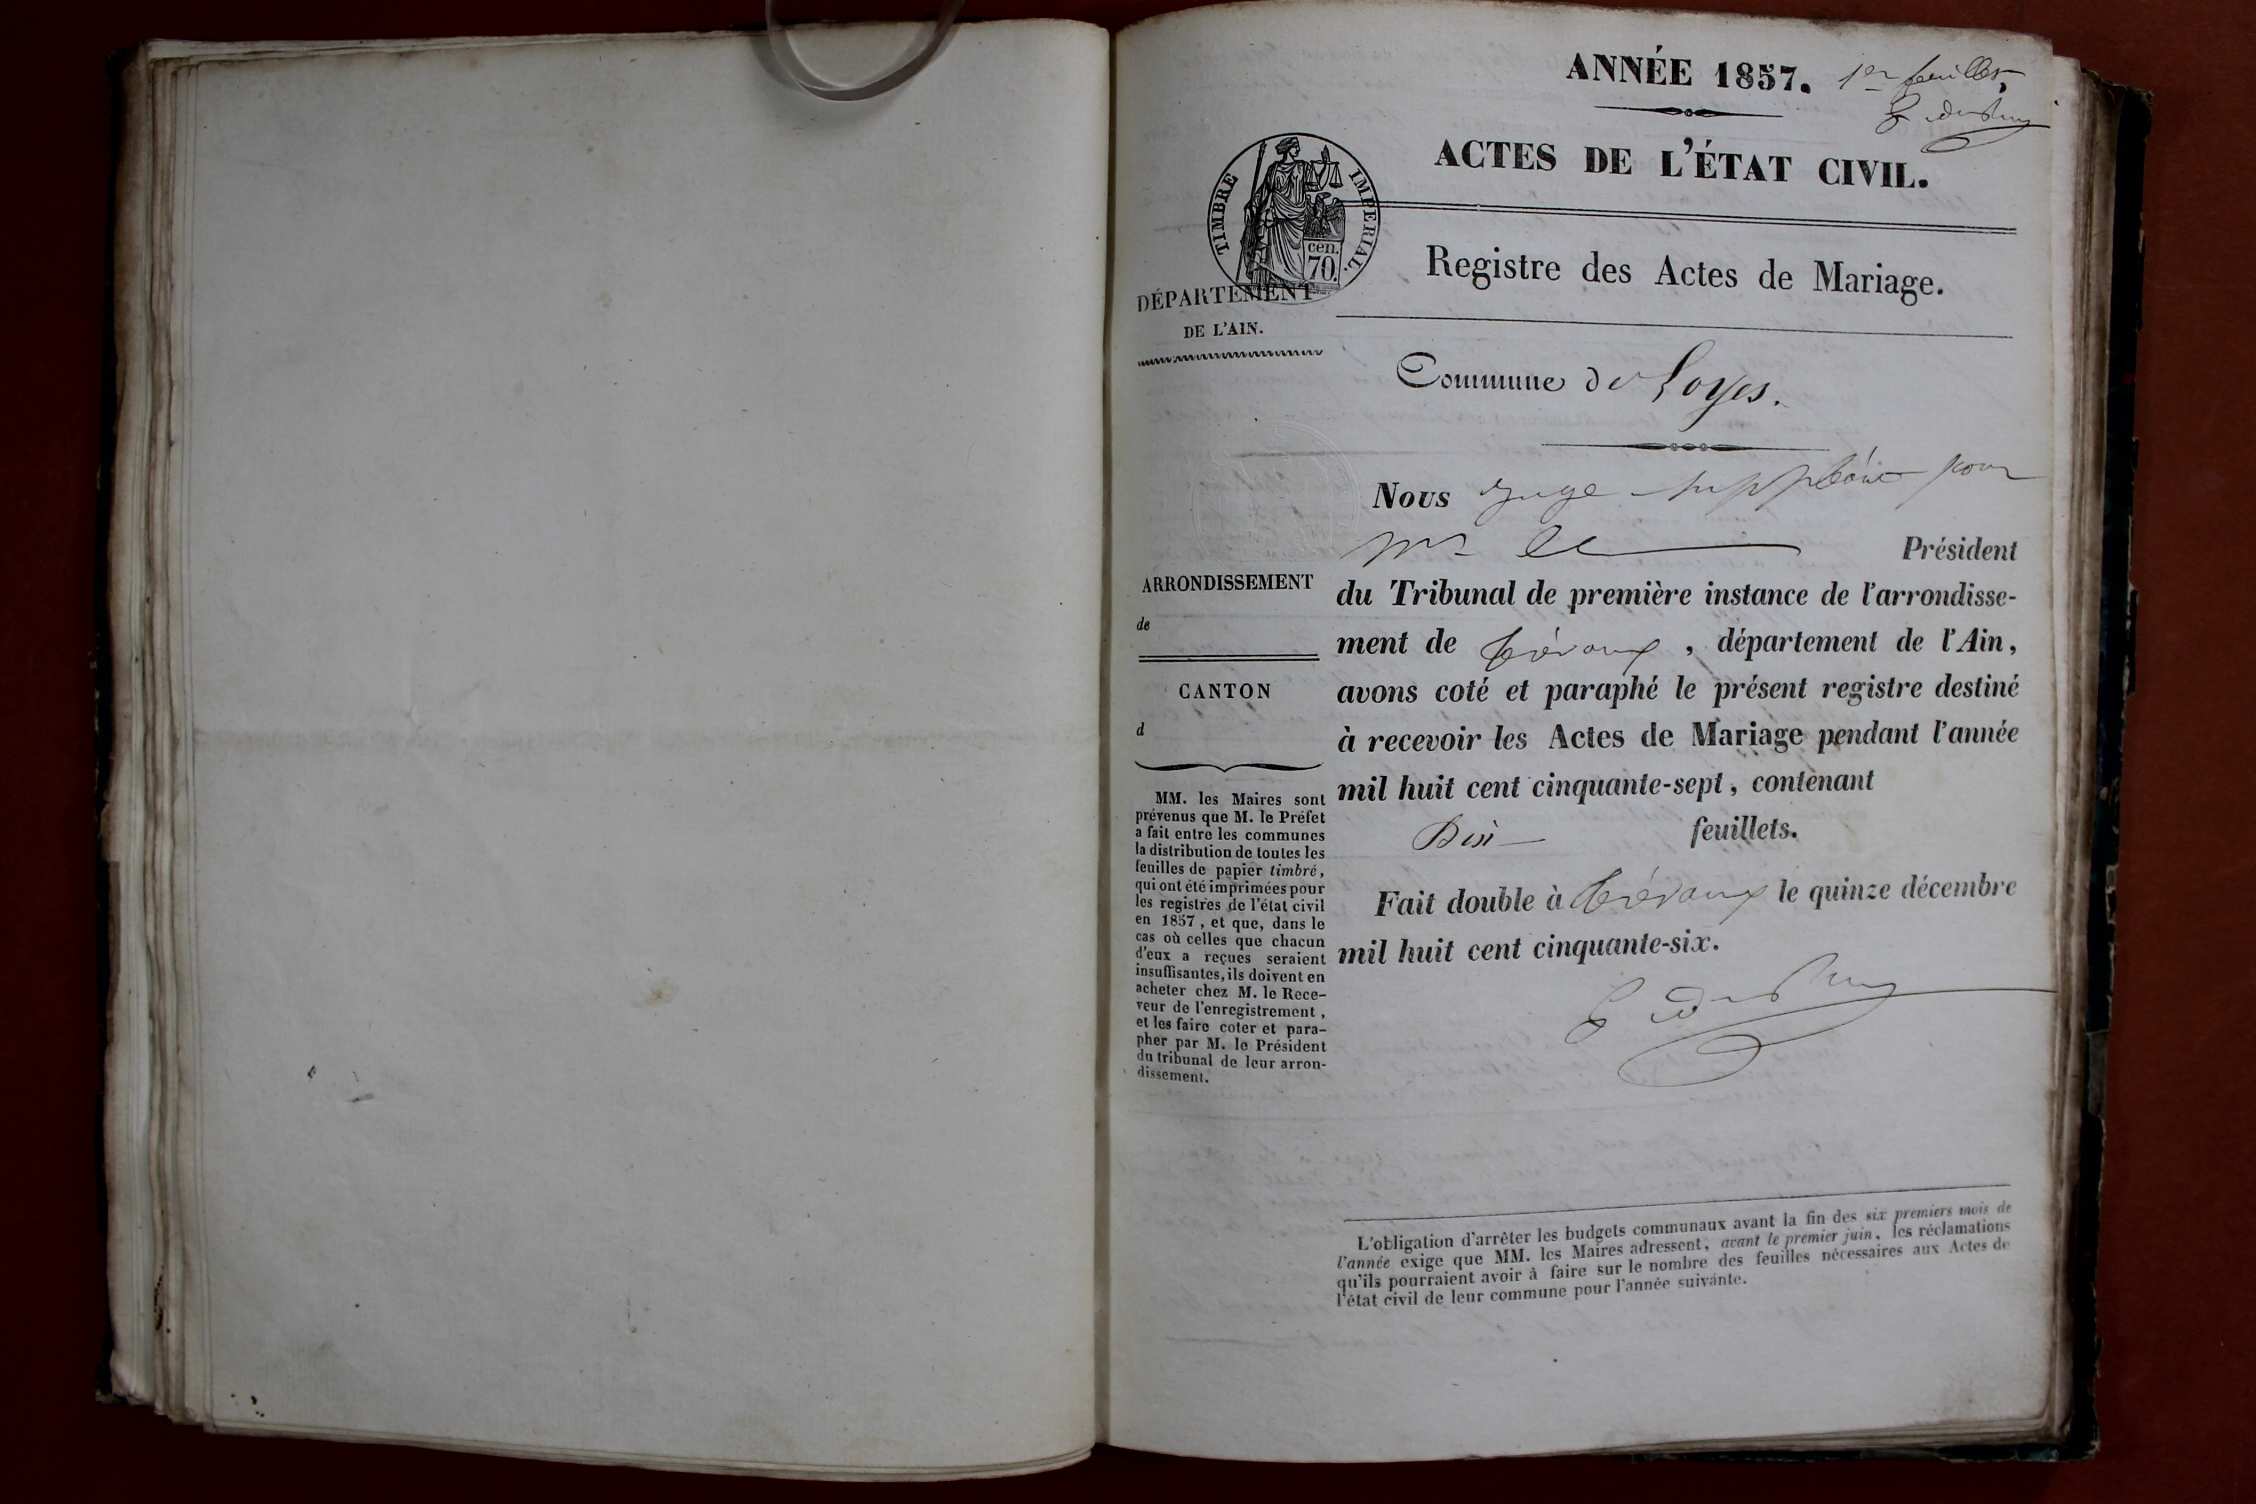 ANNÉE 1857. 1er feuillet
ACTES DE L'ÉTAT CIVIL.
TIMBRE IMPERIAL.
cen.
70.
Registre des Actes de Mariage.
DÉPARTEMENT
DE L'AIN.
Commune de Loyes.
Nous juge suppléant pour
Mr le Président
du Tribunal de première instance de l'arrondisse-
ment de Trévoux, département de l'Ain,
avons coté et paraphé le présent registre destiné
à recevoir les Actes de Mariage pendant l'année
mil huit cent cinquante-sept, contenant
Dix feuillets.
Fait double à Trévoux le quinze décembre
mil huit cent cinquante-six.
ARRONDISSEMENT
de
CANTON
d
MM. les Maires sont
prévenus que M. le Préfet
a fait entre les communes
la distribution de toutes les
feuilles de papier timbré,
qui ont été imprimées pour
les registres de l'état civil
en 1857, et que, dans le
cas où celles que chacun
d'eux a reçues seraient
insuffisantes, ils doivent en
acheter chez M. le Rece-
veur de l'enregistrement,
et les faire coter et para-
pher par M. le Président
du tribunal de leur arron-
dissement.
L'obligation d'arrêter les budgets communaux avant la fin des six premiers mois de
l'année exige que MM. les Maires adressent, avant le premier juin, les réclamations
qu'ils pourraient avoir à faire sur le nombre des feuilles nécessaires aux Actes de
l'état civil de leur commune pour l'année suivante.